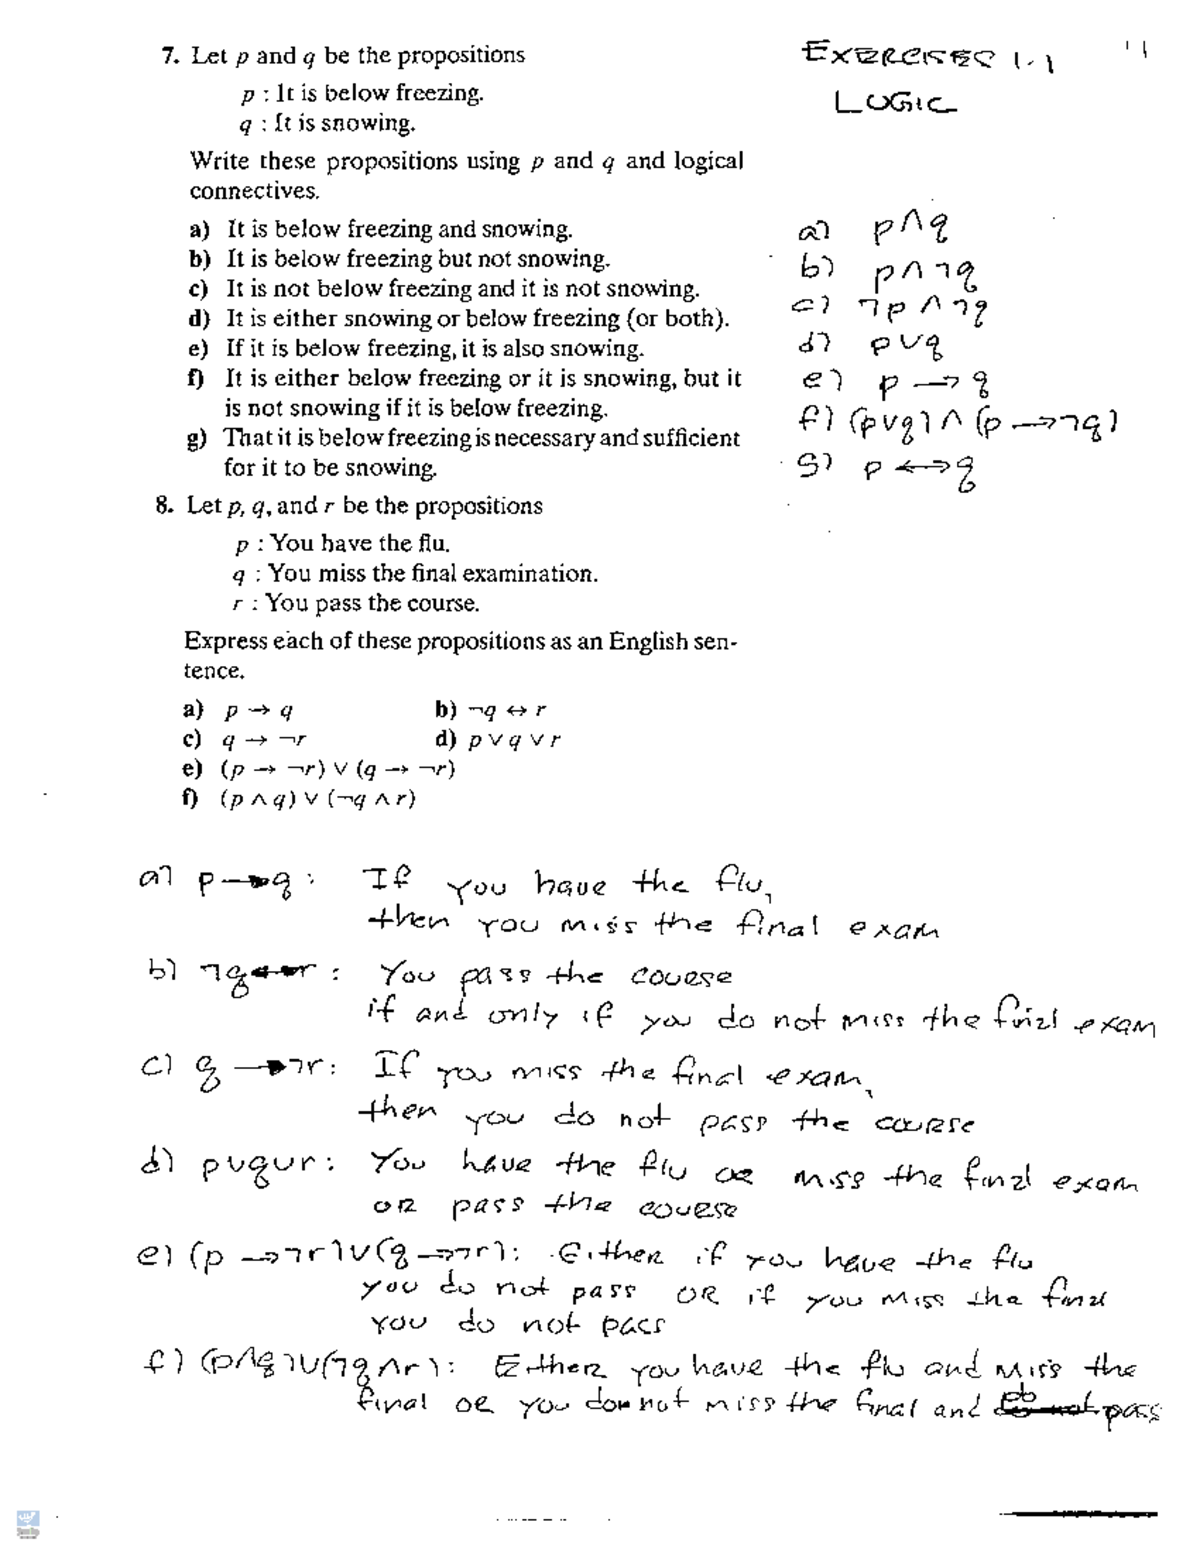 7. Let p and q be the propositions
p : It is below freezing.
q : It is snowing.
Write these propositions using p and q and logical
connectives.
a) It is below freezing and snowing.
b) It is below freezing but not snowing.
c) It is not below freezing and it is not snowing.
d) It is either snowing or below freezing (or both).
e) If it is below freezing, it is also snowing.
f) It is either below freezing or it is snowing, but it
is not snowing if it is below freezing.
g) That it is below freezing is necessary and sufficient
for it to be snowing.
EXERCISES 1.1
LOGIC
a) p∧q
b) p∧¬q
c) ¬p∧¬q
d) p∨q
e) p → q
f) (p∨q)∧(p→¬q)
g) p ↔ q
8. Let p, q, and r be the propositions
p : You have the flu.
q : You miss the final examination.
r : You pass the course.
Express each of these propositions as an English sen-
tence.
a) p → q b) ¬q ↔ r
c) q → ¬r d) p ∨ q ∨ r
e) (p → ¬r) ∨ (q → ¬r)
f) (p ∧ q) ∨ (¬q ∧ r)
a) p→q: If you have the flu,
then you miss the final exam
b) ¬q↔r: You pass the course
if and only if you do not miss the final exam
c) q→¬r: If you miss the final exam,
then you do not pass the course
d) p∨q∨r: You have the flu or miss the final exam
or pass the course
e) (p→¬r)∨(q→¬r): Either if you have the flu
you do not pass OR if you miss the final
you do not pass
f) (p∧q)∨(¬q∧r): Either you have the flu and miss the
final or you do not miss the final and do not pass